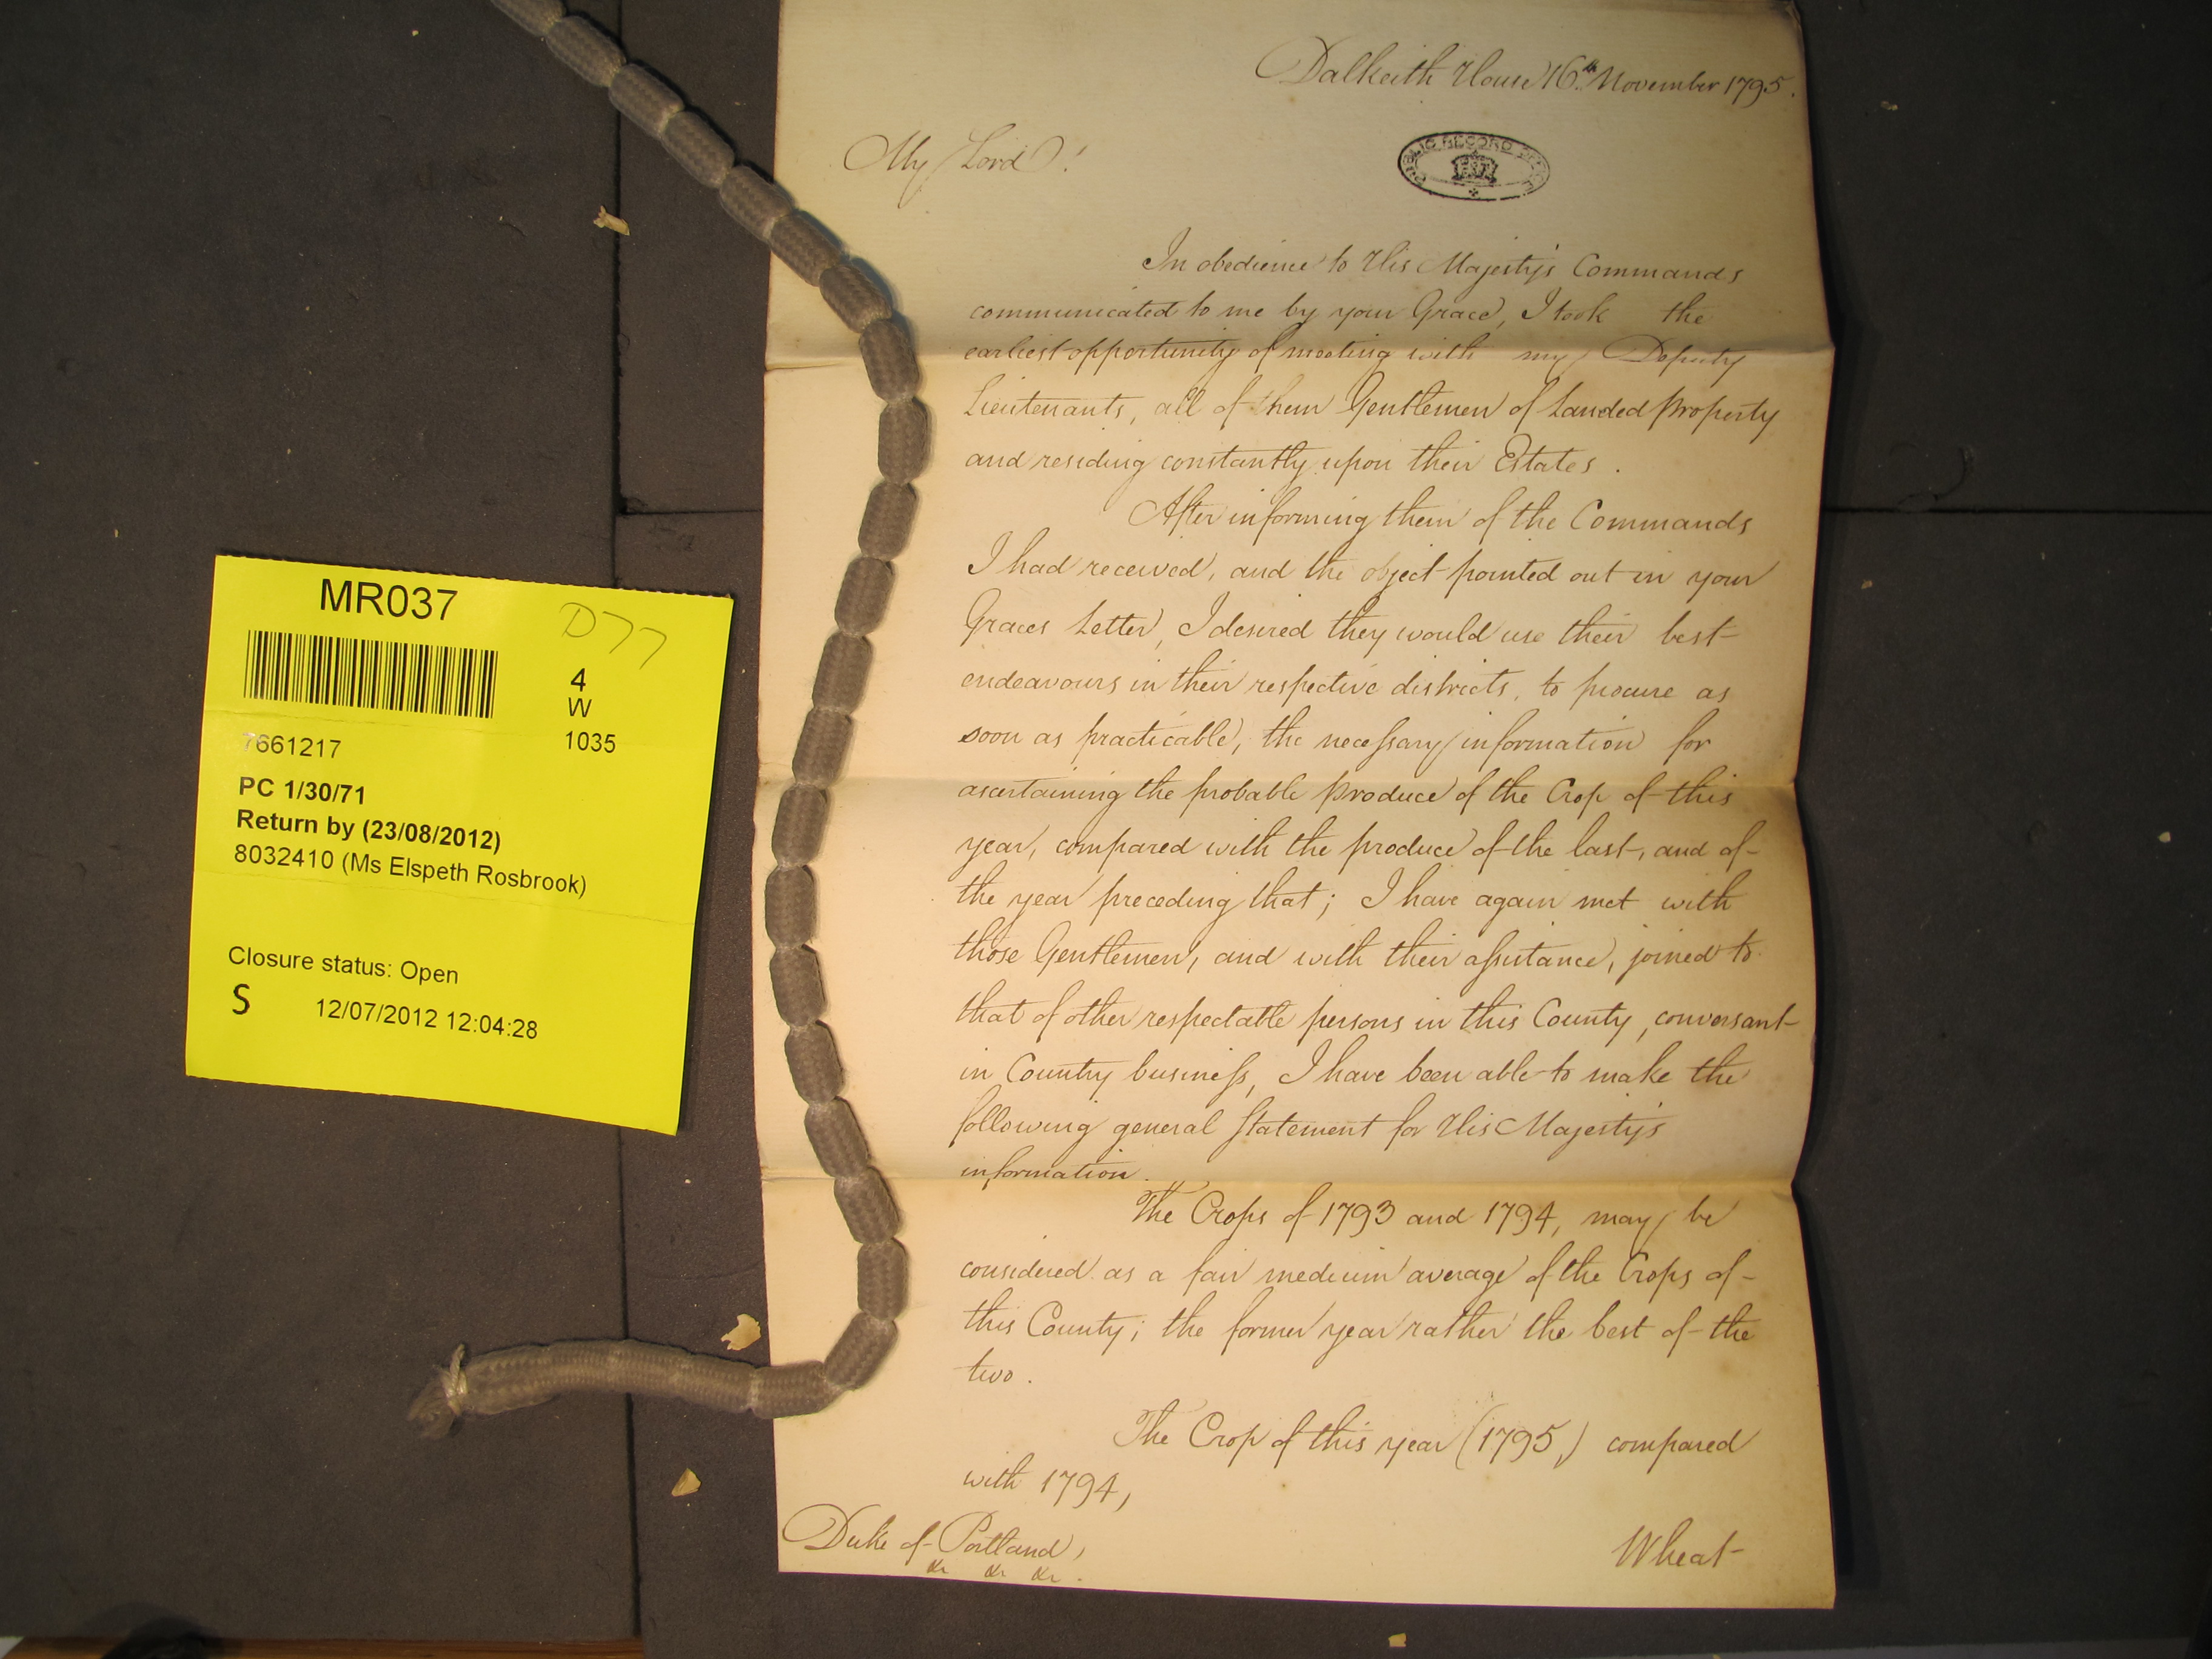 Dalkeith House 16th November 1795.
My Lord!
PUBLIC RECORD OFFICE
In obedience to His Majesty's Commands
communicated to me by your Grace, I took the
earliest opportunity of meeting with my Deputy
Lieutenants, all of them Gentlemen of Landed property
and residing constantly upon their Estates.
After informing them of the Commands
I had received, and the object pointed out in your
Graces Letter, I desired they would use their best
endeavours in their respective districts, to procure as
soon as practicable, the necessary information for
ascertaining the probable produce of the Crop of this
year, compared with the produce of the last, and of
the year preceding that; I have again met with
those Gentlemen, and with their assistance, joined to
that of other respectable persons in this County, conversant
in Country business, I have been able to make the
following general Statement for His Majesty's
information.
The Crops of 1793 and 1794, may be
considered as a fair medium average of the Crops of
this County; the former year rather the best of the
two.
The Crop of this year (1795,) compared
with 1794,
Wheat
Duke of Portland,
&c &c &c.
MR037
D77
4
W
7661217
1035
PC 1/30/71
Return by (23/08/2012)
8032410 (Ms Elspeth Rosbrook)
Closure status: Open
S 12/07/2012 12:04:28